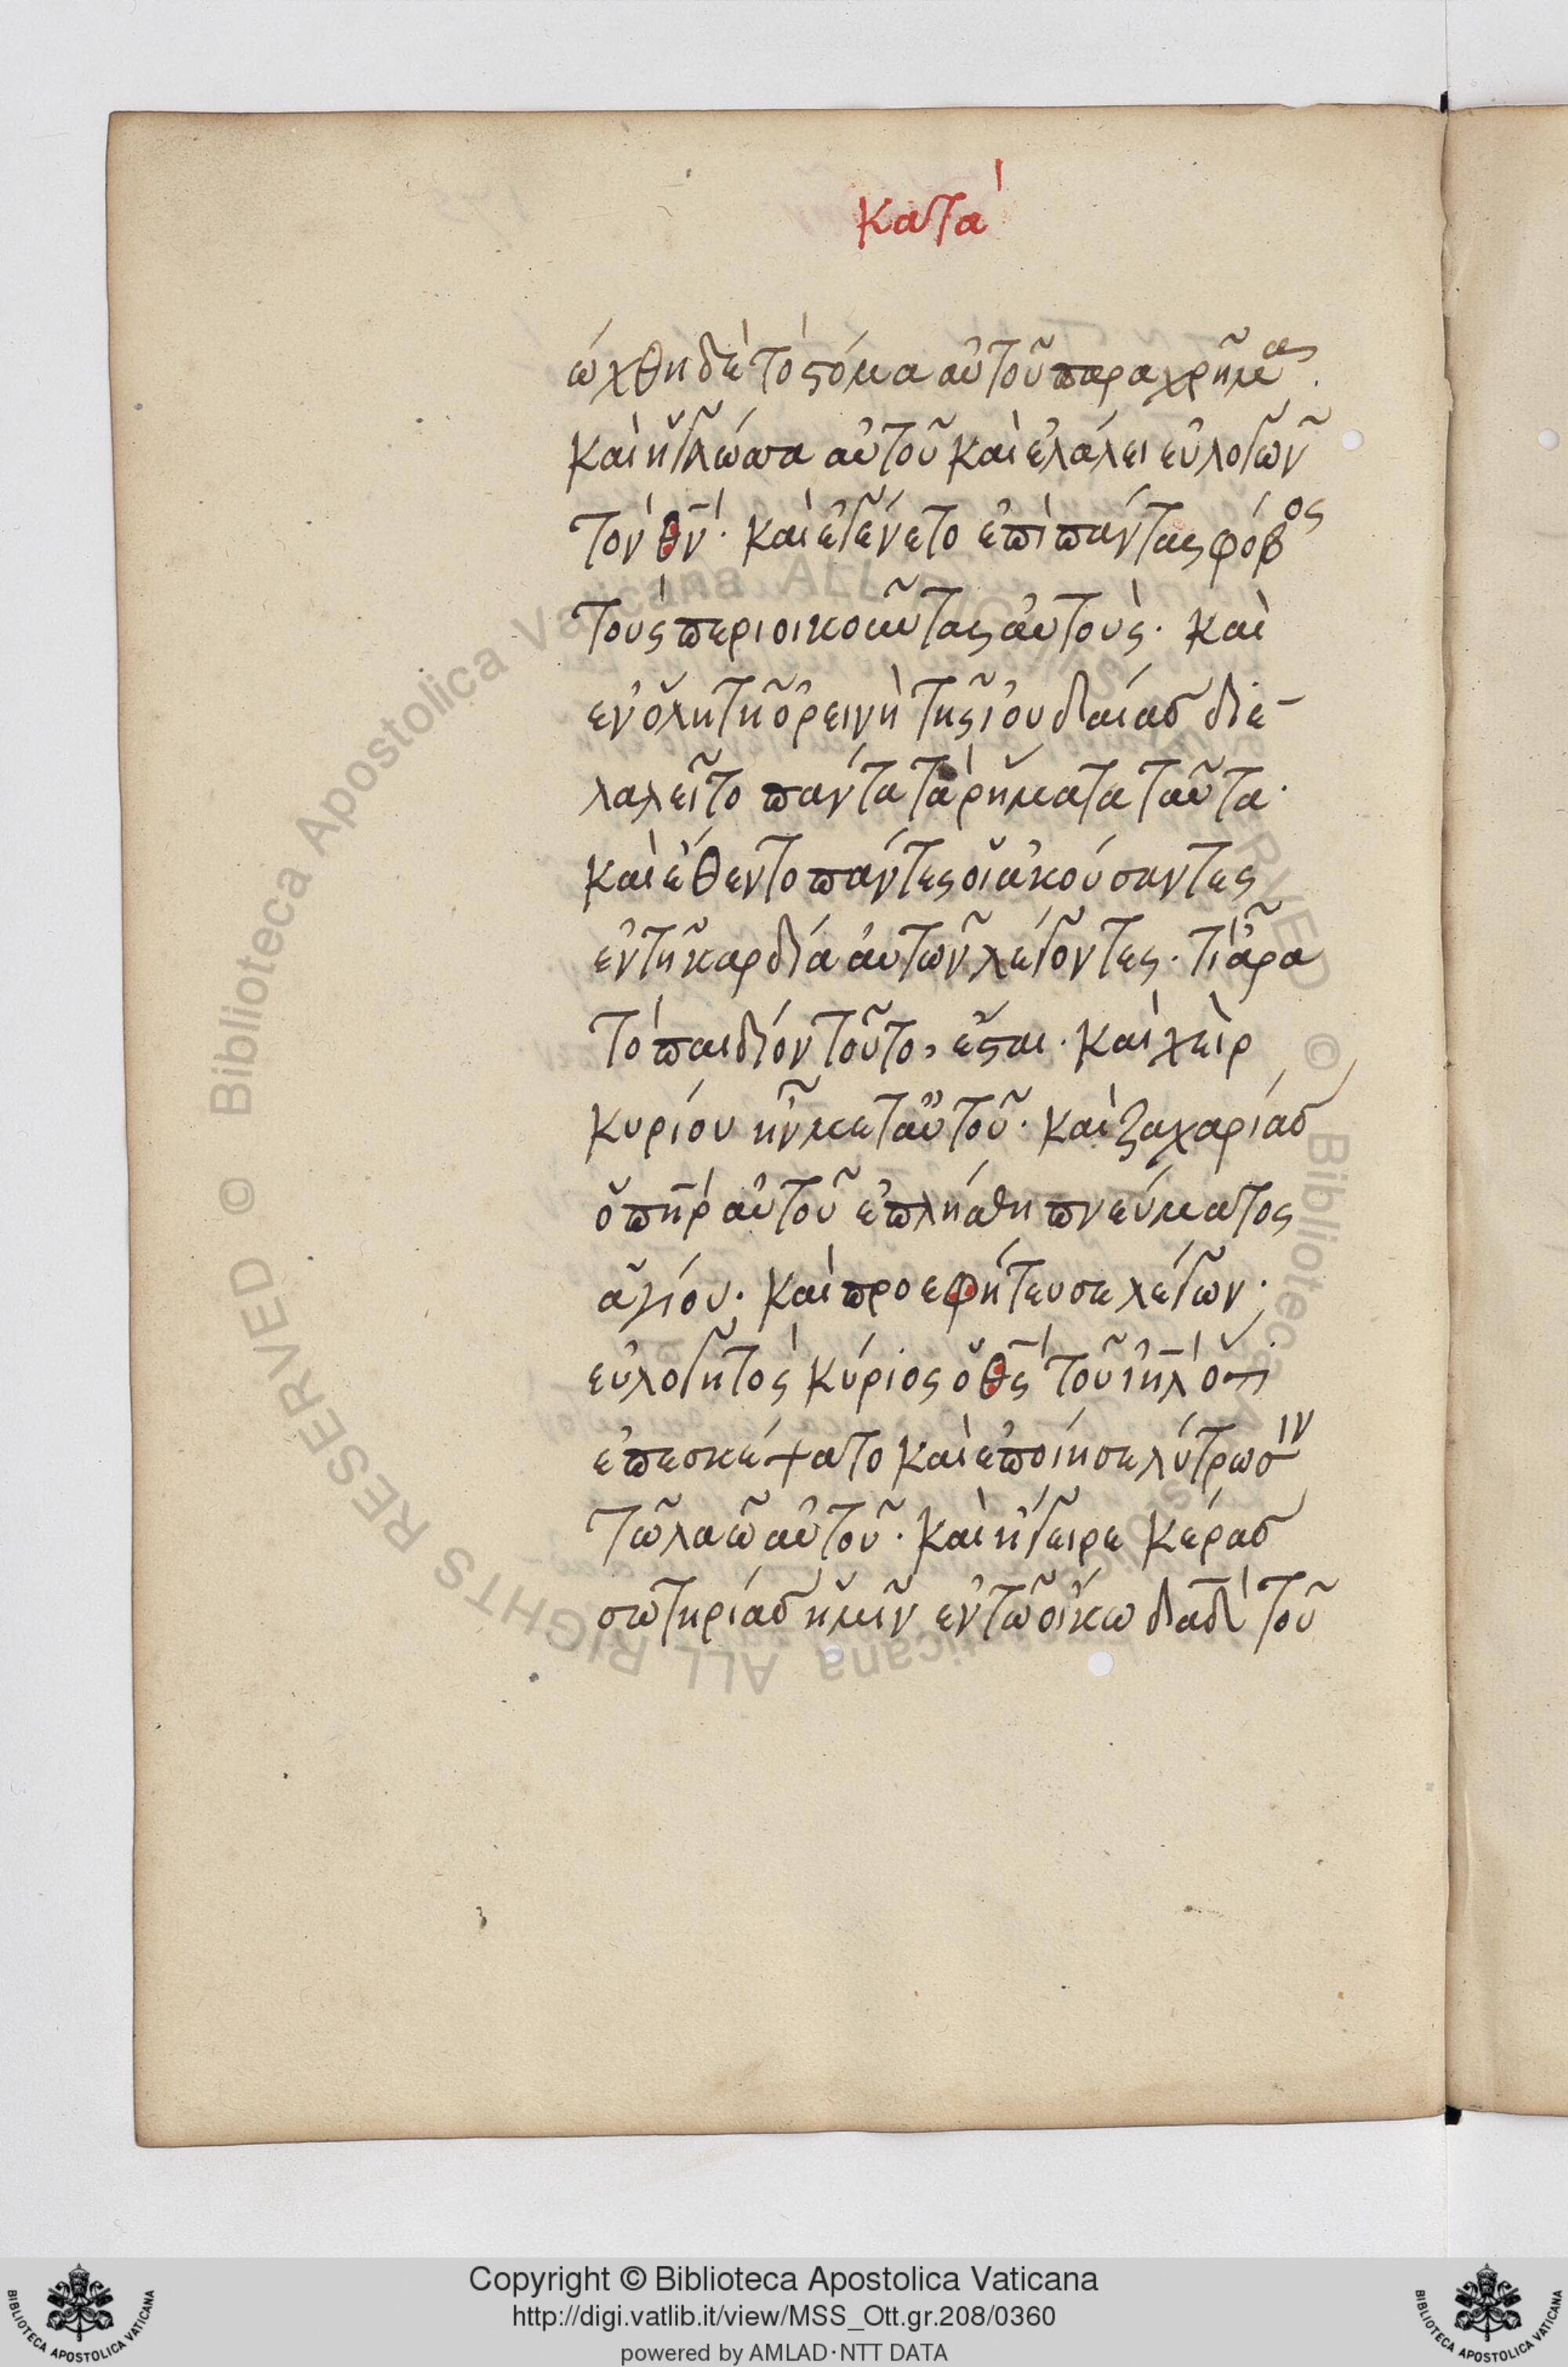 κατὰ
ώχθη δὲ τὸ ϛόμα αὐτοῦ παραχρῆμα.
καὶ ἡ γλῶσσα αὐτοῦ καὶ ἐλάλει εὐλογῶν
τὸν θν̄. καὶ ἐγένετο ἐπὶ πάντας φόβος
τοὺς περιοικοῦντας αὐτοὺς. καὶ
ἐν ὅλη τῆ ὀρεινὴ τῆς ἰουδαίας διε-
λαλεῖτο πάντα τὰ ῥήματα ταῦτα.
καὶ ἔθεντο πάντες οἱ ἀκούσαντες
ἐν τῆ καρδία αὐτῶν λέγοντες. τί ἆρα
τὸ παιδίον τοῦτο, ἔϛαι. καὶ χεὶρ
κυρίου ἦν μετ αὐτοῦ. καὶ ζαχαρίας
ὁ πη̄ρ αὐτοῦ ἐπλήσθη πνεύματος
ἁγίου. καὶ προεφήτευσε λέγων.
εὐλογητὸς κύριος ὁ θς̄ τοῦ ιη̄λ ὅτι
ἐπεσκέψατο καὶ ἐποίησε λύτρωσιν
τῶ λαῶ αὐτοῦ. καὶ ἤγειρε κέρας
σωτηρίας ἡμῖν ἐν τῶ οἴκω δαδ̄ τοῦ
Copyright © Biblioteca Apostolica Vaticana
http://digi.vatlib.it/view/MSS_Ott.gr.208/0360
powered by AMLAD·NTT DATA
BIBLIOTECA APOSTOLICA VATICANA
BIBLIOTECA APOSTOLICA VATICANA
© Biblioteca Apostolica Vaticana ALL RIGHTS RESERVED
© Biblioteca Apostolica Vaticana ALL RIGHTS RESERVED